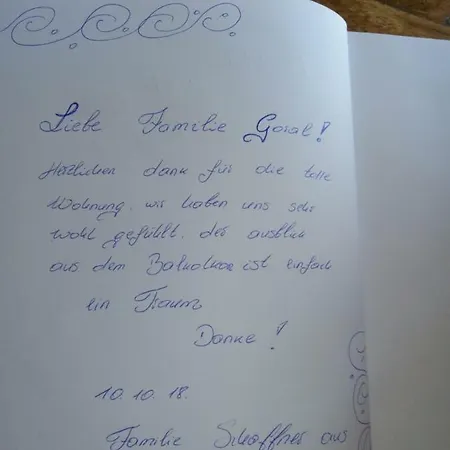 Liebe Familie Goral!
Herzlichen dank für die tolle
Wohnung. wir haben uns sehr
wohl gefühlt. der ausblick
aus dem Balkon ist einfach
ein Traum
Danke!
10.10.18.
Familie Schaffner aus